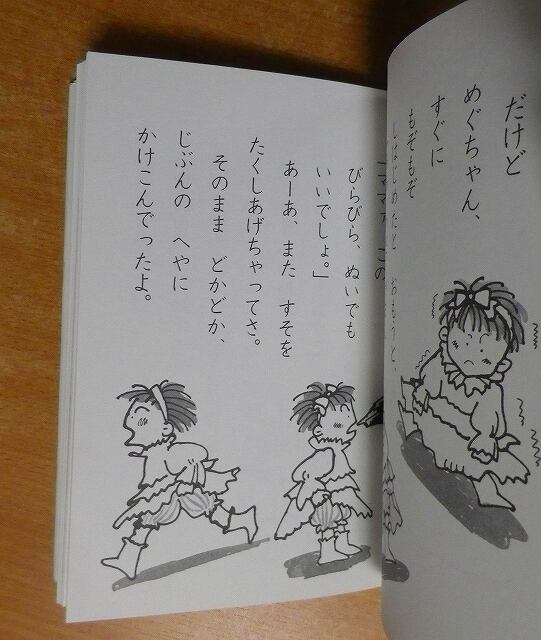 だけど
めぐちゃん、
すぐに
もぞもぞ
しはじめたと、おもうと、
「ママァ この
びらびら、ぬいでも
いいでしょ。」
あーあ、また すそを
たくしあげちゃってさ。
そのまま どかどか、
じぶんの へやに
かけこんでったよ。